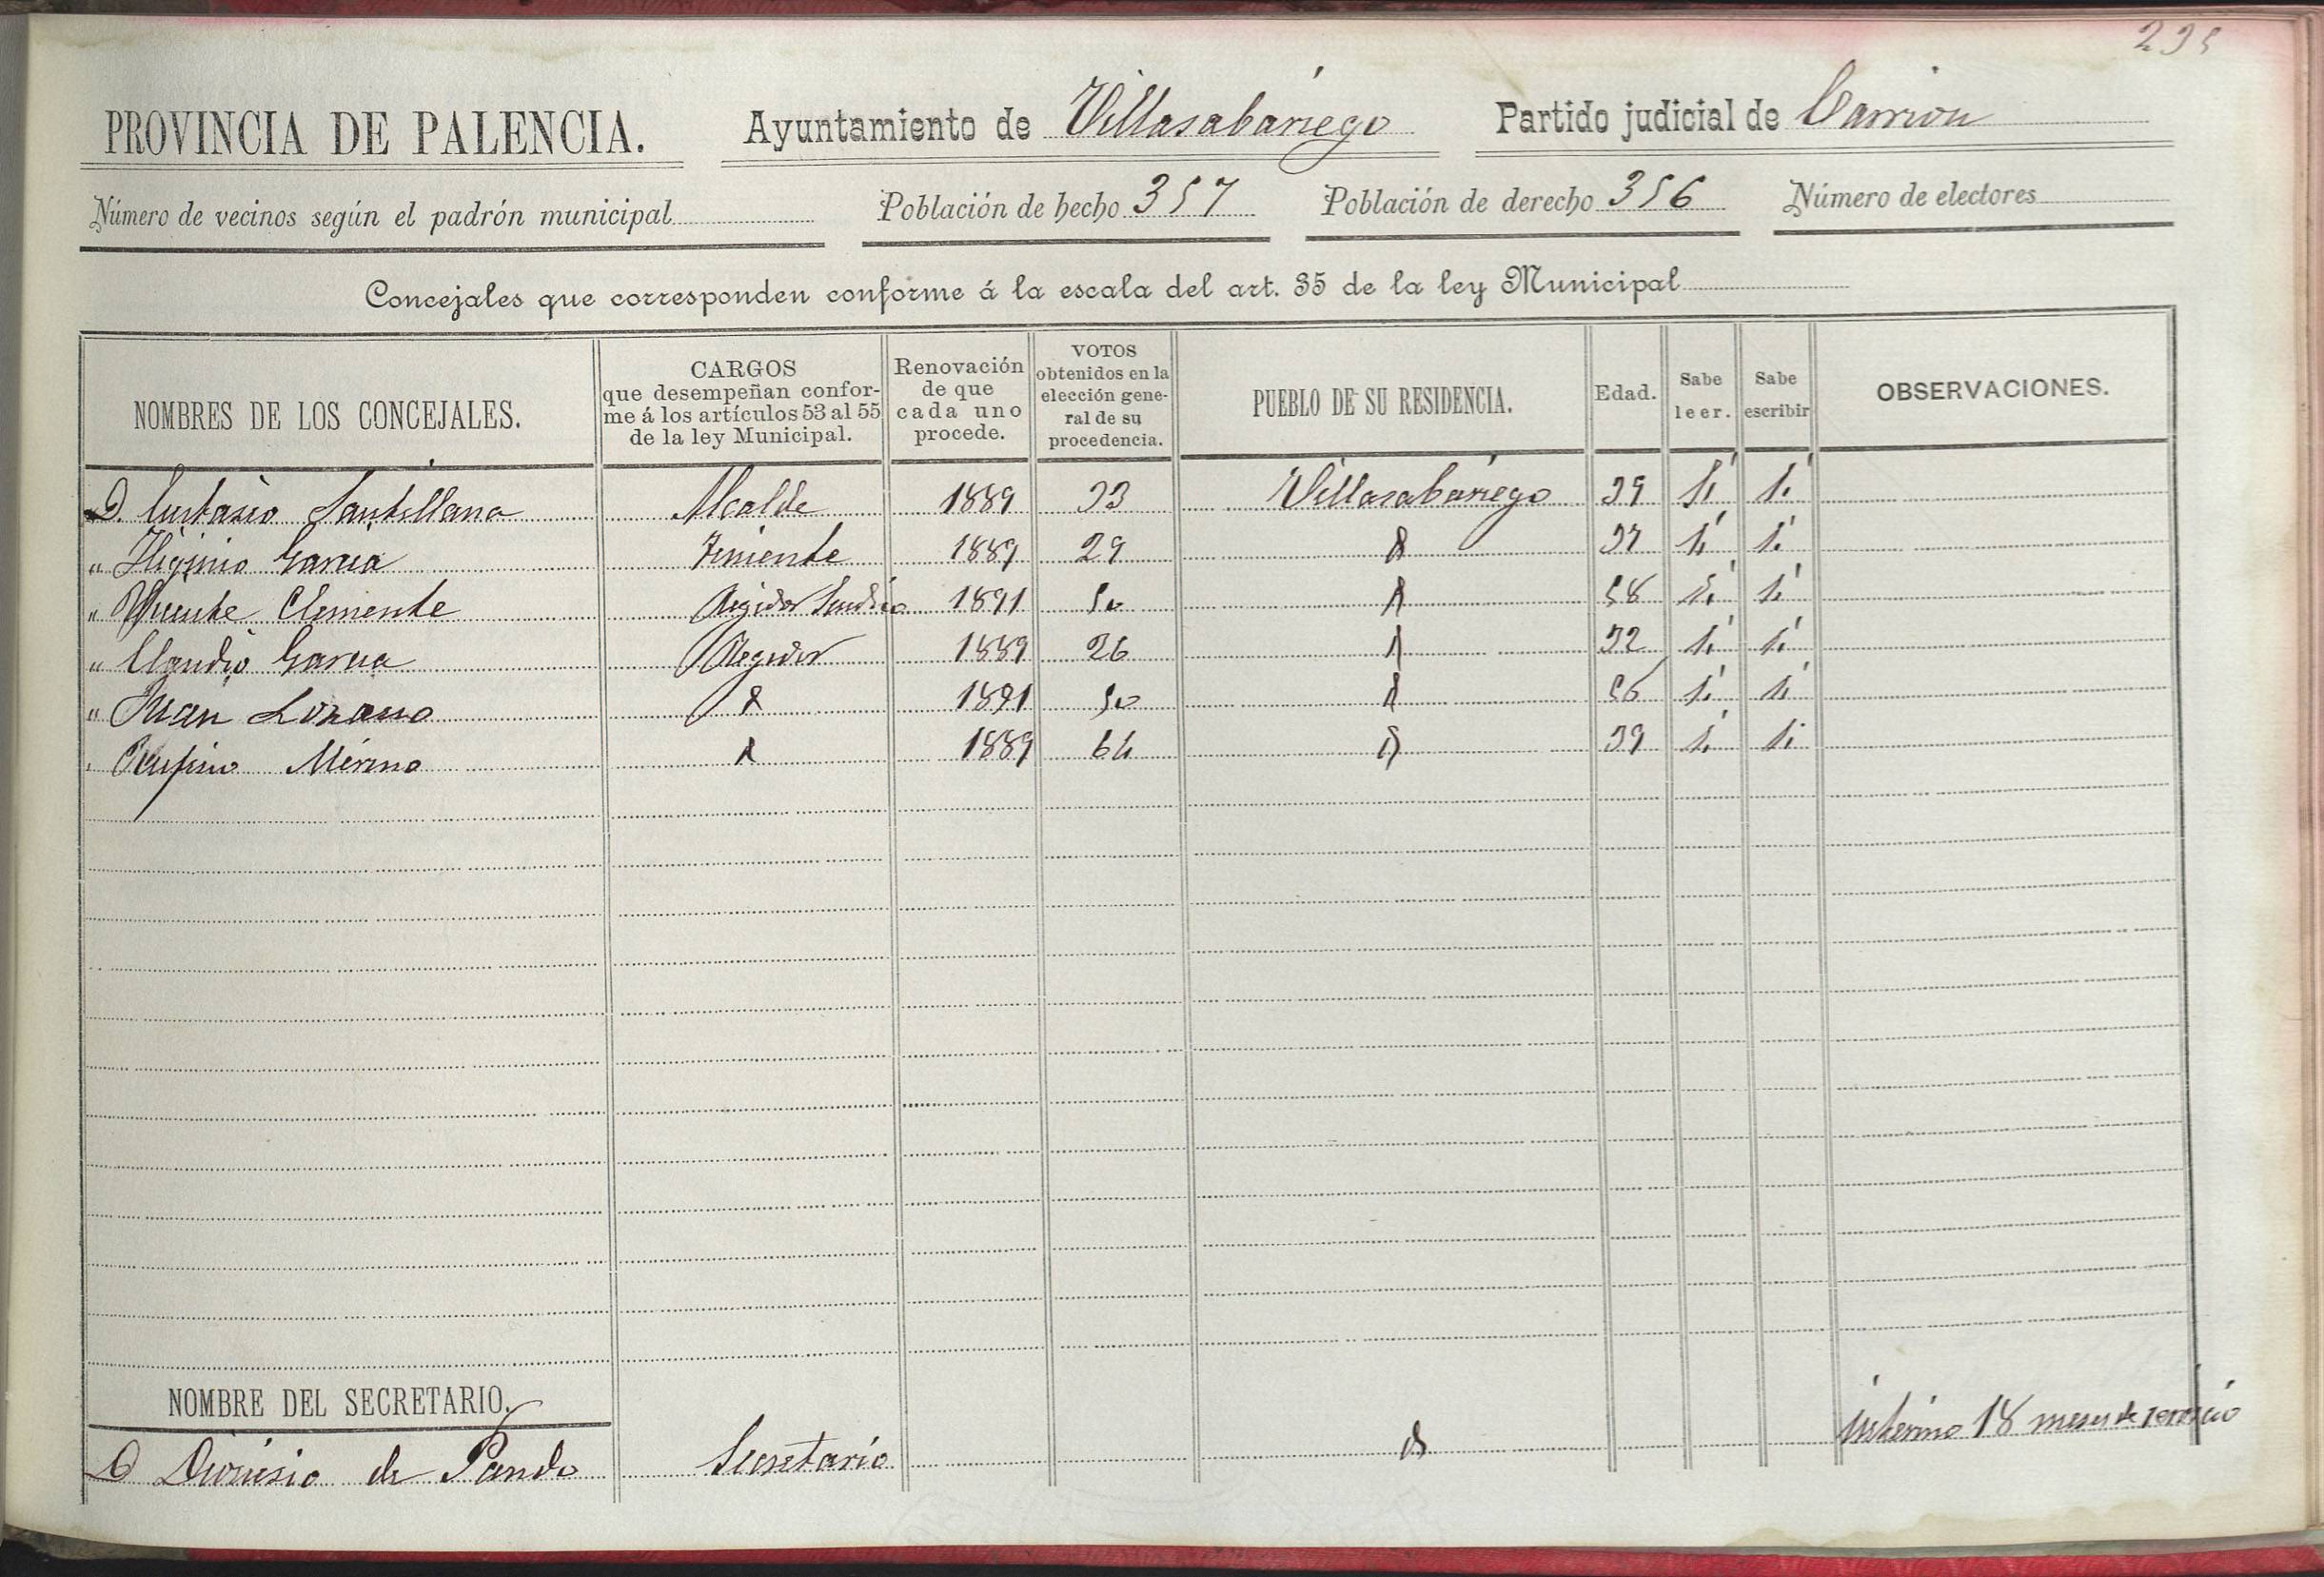 235
PROVINCIA DE PALENCIA. Ayuntamiento de Villasabariego Partido judicial de Carrion
Número de vecinos según el padrón municipal Población de hecho 357 Población de derecho 356 Número de electores
Concejales que corresponden conforme á la escala del art. 35 de la ley Municipal
NOMBRES DE LOS CONCEJALES. CARGOS que desempeñan confor- me á los artículos 53 al 55 de la ley Municipal. Renovación de que cada uno procede. VOTOS obtenidos en la elección gene- ral de su procedencia. PUEBLO DE SU RESIDENCIA. Edad. Sabe leer. Sabe escribir OBSERVACIONES.
D. Eustasio Santillana Alcalde 1889 33 Villasabariego 39 Sí Sí
" Higinio Garcia Teniente 1889 29 37 Sí Sí
" Vicente Clemente Regidor Sindico 1891 50 58 Sí Sí
" Claudio Garcia Regidor 1889 26 32 Sí Sí
" Juan Lozano 1891 50 56 Sí Sí
" Rufino Merino 1889 64 39 Sí Sí
NOMBRE DEL SECRETARIO.
D Dionisio de Pando Secretario interino 18 meses de servicio